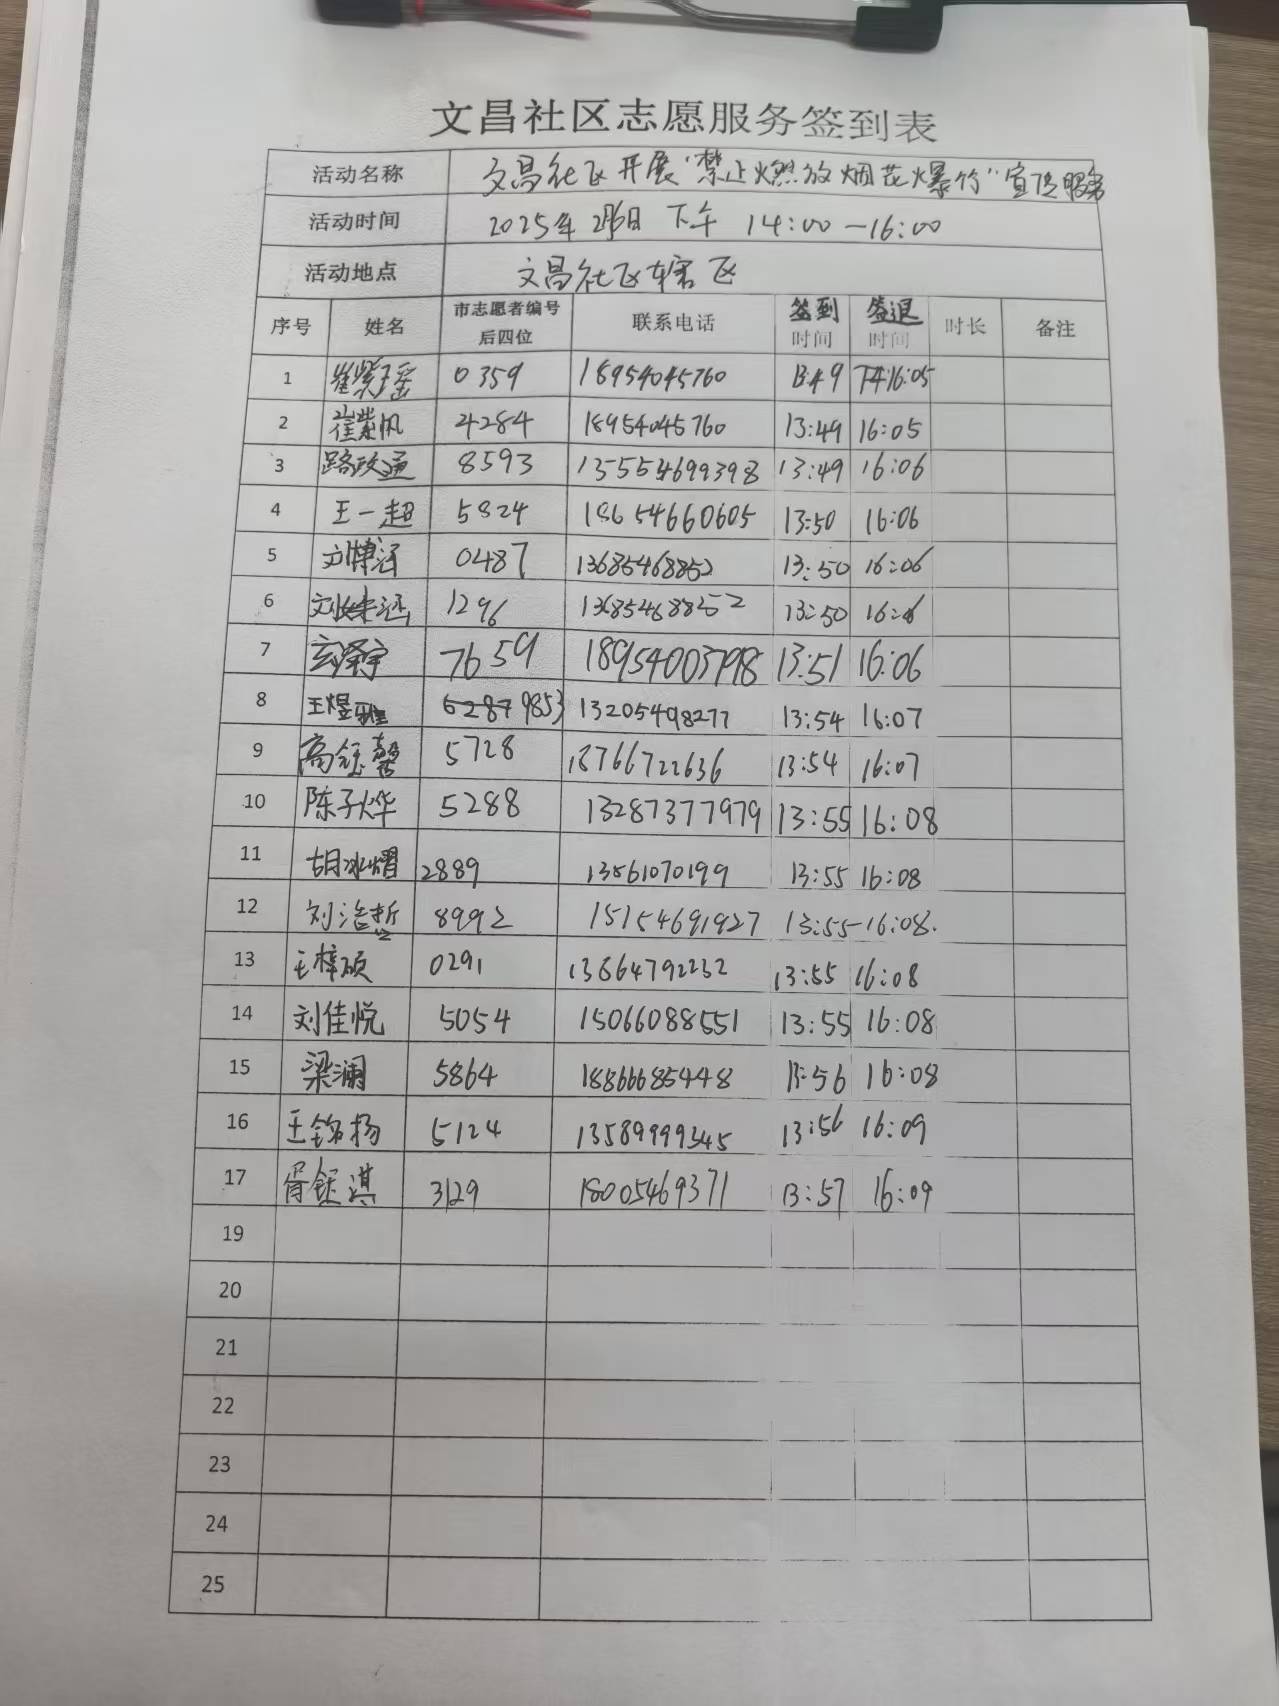 文昌社区志愿服务签到表
活动名称 文昌社区开展"禁止燃放烟花爆竹"宣传服务
活动时间 2025年2月6日 下午 14:00—16:00
活动地点 文昌社区辖区
序号 姓名 市志愿者编号后四位 联系电话 签到时间 签退时间 时长 备注
1 崔紫瑶 0359 18954045760 13:49 下午16:05
2 崔紫帆 4284 18954045760 13:49 16:05
3 路政通 8593 13555469939８ 13:49 16:06
4 王一超 5824 18654660605 13:50 16:06
5 刘博涵 0487 13685468852 13:50 16:06
6 刘姝涵 1296 13685468852 13:50 16:06
7 玄泽宇 7659 18954003798 13:51 16:06
8 王煜雅 9853 13205498277 13:54 16:07
9 高钰馨 5728 18766722636 13:54 16:07
10 陈子烨 5288 13287377979 13:55 16:08
11 胡冰熠 2889 13561070199 13:55 16:08
12 刘浩哲 8992 15154691927 13:55-16:08.
13 王梓硕 0291 13864792232 13:55 16:08
14 刘佳悦 5054 15066088551 13:55 16:08
15 梁澜 5864 18866685448 13:56 16:08
16 王铭扬 5124 13589999345 13:56 16:09
17 胥钰淇 3129 18005469371 13:57 16:09
19
20
21
22
23
24
25